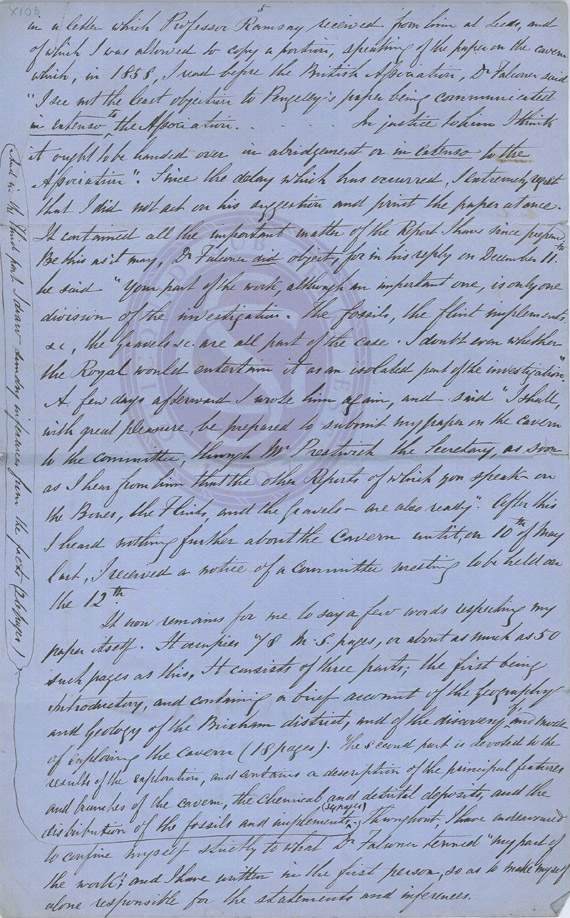 X106
5
in a letter which Professor Ramsay received from him at Leeds, and
of which I was allowed to copy a portion, speaking of the paper on the cavern
which, in 1858, I read before the British Association, Dr Falconer said
"I see not the least objection to Pengelly's paper being communicated
in extenso to the Association. . . . In justice to him I think
it ought to be handed over in abridgement or in extenso to the
Association". Since the delay which has occurred, I extremely regret
that I did not act on his suggestion and print the paper at once.
It contained all the important matter of the Report I have since prepared
Be this as it may, Dr Falconer did object, for in his reply on December 11th
he said "Your part of the work, although an important one, is only one
division of the investigation. The fossils, the flint implements
&c, the gravels &c are all part of the case. I doubt even whether
the Royal would entertain it as an isolated part of the investigation".
A few days afterward I wrote him again, and said "I shall,
with great pleasure, be prepared to submit my paper on the cavern
to the committee, through Mr Prestwich the Secretary, as soon
as I hear from him that the other Reports of which you speak - on
the Bones, the Flints, and the Gravels - are also ready". After this
I heard nothing further about the Cavern until, on 10th of May
last, I received a notice of a committee meeting to be held on
the 12th
It now remains for me to say a few words respecting my
paper itself. It occupies 78 M.S. pages, or about as much as 50
such pages as this, It consists of three parts; the first being
introductory, and containing a brief account of the geography
and Geology of the Brixham district, and of the discovery, and mode
of exploring the cavern (18 pages). The second part is devoted to the
results of the exploration, and contains a description of the principal features
and branches of the cavern, the chemical and detrital deposits, and the
distribution of the fossils and implements (34 pages); Throughout, I have endeavoured
to confine myself strictly to what Dr Falconer termed "my part of
the work"; and I have written in the first person, so as to make myself
alone responsible for the statements and inferences.
And in the Third part I draw sundry inferences from the facts (26 pages)